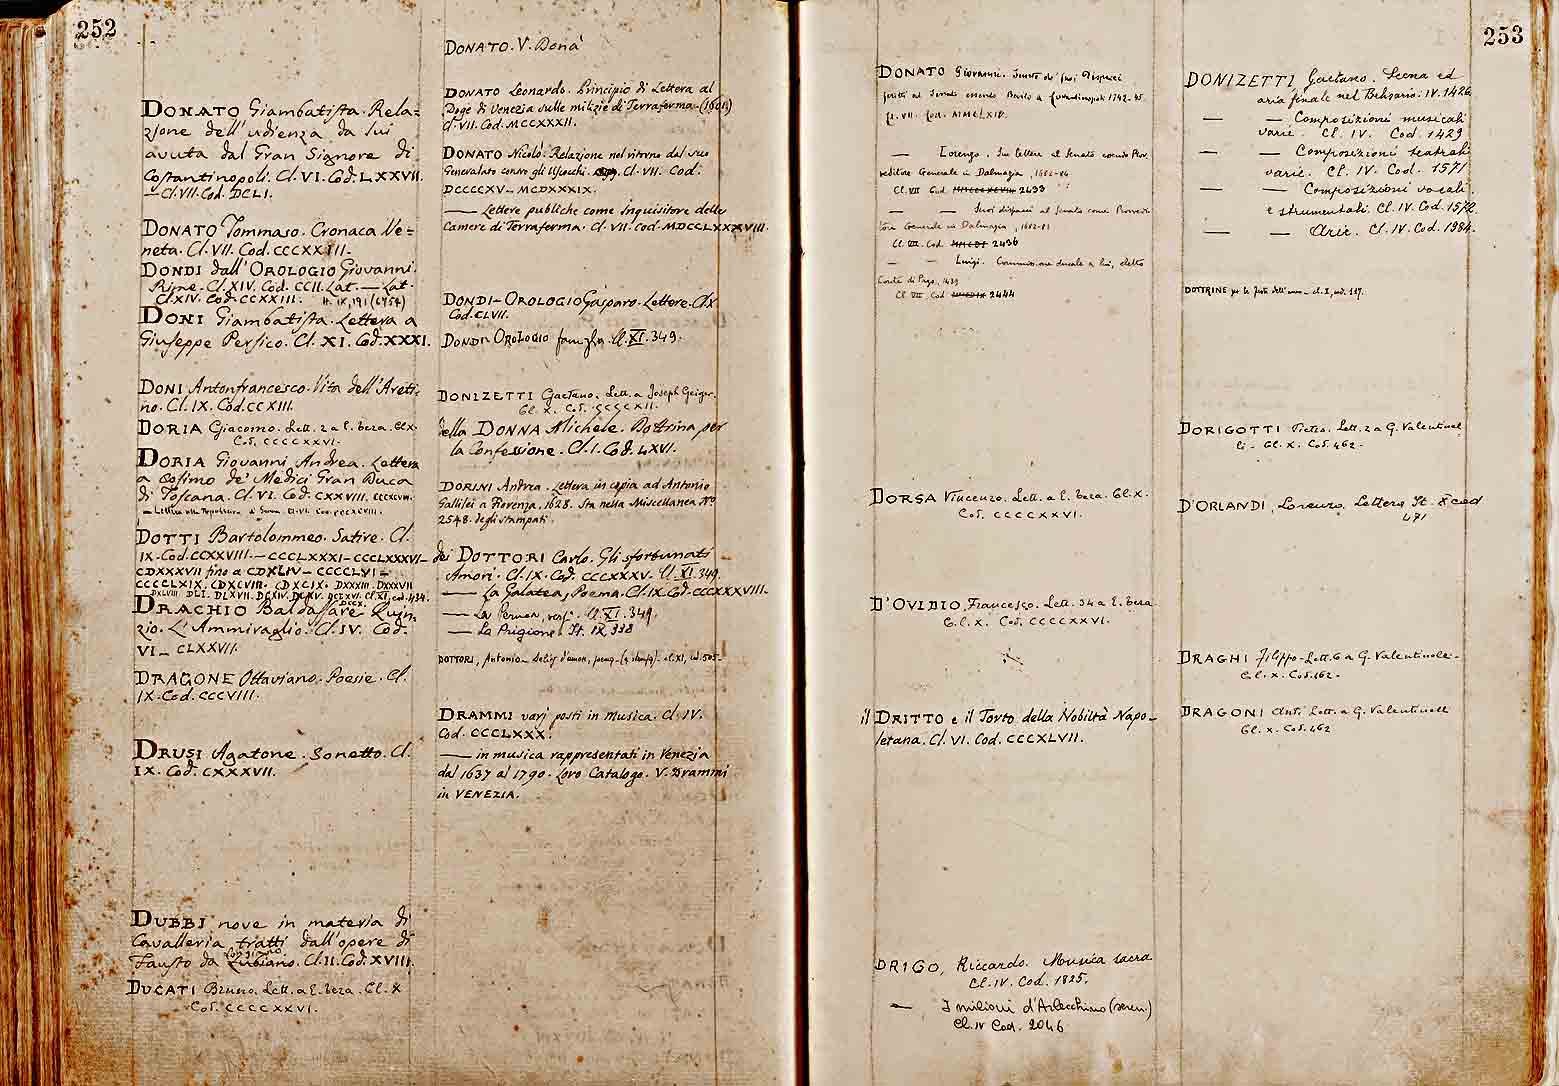 252
DONATO Giambatista. Rela=
zione dell'udienza da lui
avuta dal Gran Signore di
Costantinopoli. Cl. VI. Cod. LXXVII.
— Cl. VII. Cod. DCLI.
DONATO Tommaso. Cronaca Ve=
neta. Cl. VII. Cod. CCCXXIII.
DONDI dall'OROLOGIO Giovanni.
Rime. Cl. XIV. Cod. CCII. Lat. — Lat.
Cl. XIV. Cod. CCXXIII. It. IX, 191 (6754)
DONI Giambatista. Lettera a
Giuseppe Persico. Cl. XI. Cod. XXXI.
DONI Antonfrancesco. Vita dell'Areti-
no. Cl. IX. Cod. CCXIII.
DORIA Giacomo. Lett. 2 a E. Teza. Cl. X.
Cod. CCCCXXVI.
DORIA Giovanni Andrea. Lettera
a Cosimo de' Medici Gran Duca
di Toscana. Cl. VI. Cod. CXXVIII.
DOTTI Bartolommeo. Satire. Cl.
IX. Cod. CCXXVIII. — CCCLXXXI — CCCLXXXVI —
CDXXXVII fino a CDXLIV — CCCCLVI —
CCCCLXIX. CDXCVIII. CDXCIX. DXXXIII. DXXXVII
DXLVIII DLI. DLXVII. DCXIV. DCXV. DCXXVI. Cl. XI, cod. 434.
DRACHIO Baldassare Quin-
zio. L'Ammiraglio. Cl. IV. Cod.
VI — CLXXVII.
DRAGONE Ottaviano. Poesie. Cl.
IX. Cod. CCCVIII.
DRUSI Agatone. Sonetto. Cl.
IX. Cod. CXXXVII.
DUBBI nove in materia di
Cavalleria tratti dall'opere di
Fausto da Longiano. Cl. II. Cod. XVIII.
DUCATI Bruno. Lett. a E. Teza. Cl. X
Cod. CCCCXXVI.
DONATO. V. Donà
DONATO Leonardo. Principio di Lettera al
Doge di Venezia sulle milizie di Terraferma.
Cl. VII. Cod. MCCXXXII.
DONATO Nicolò. Relazione nel ritorno dal suo
Generalato contro gli Uscocchi. Cl. VII. Cod.
DCCCCXV — MCDXXXIX.
— Lettere pubbliche come Inquisitore delle
Camere di Terraferma. Cl. VII. Cod. MDCCLXXXVIII.
DONDI-OROLOGIO Gasparo. Lettere. Cl. X
Cod. CLVII.
DONDI-OROLOGIO famiglia. Cl. XI. 349.
DONIZETTI Gaetano. Lett. a Joseph Geiger.
Cl. X. Cod. CCCCXII.
della DONNA Michele. Dottrina per
la Confessione. Cl. I. Cod. LXVI.
DORINI Andrea. Lettera in copia ad Antonio
Gallilei a Fiorenza. 1628. Sta nella Miscellanea No
2548. degli stampati.
dei DOTTORI Carlo. Gli sfortunati
Amori. Cl. IX. Cod. CCCXXXV. Cl. XI. 349.
— La Galatea, Poema. Cl. IX. Cod. CCCXXXVIII.
— Cl. XI. 349.
— La Prigione. It. IX, 338
DOTTORI, Antonio — cl. XI, cod. 505.
DRAMMI varj posti in musica. Cl. IV.
Cod. CCCLXXX.
— in musica rappresentati in Venezia
dal 1637 al 1790. Loro Catalogo. V. Drammi
in VENEZIA.
253
DONATO Giovanni. Sunto de' suoi dispacci
scritti al Senato essendo Bailo a Costantinopoli 1742-45
— Lorenzo. Sue lettere al Senato come Prov
veditore Generale in Dalmazia, 1682-84
Cl. VII Cod. 2433
— — Suoi dispacci al Senato come Provvedi
tore Generale in Dalmazia
Cl. VII. Cod. 2436
— — Luigi. Commissione ducale a lui, eletto
Conte di Pago, 1433
Cl. VII, Cod. 2444
DORSA Vincenzo. Lett. a E. Teza. Cl. X.
Cod. CCCCXXVI.
D'OVIDIO, Francesco. Lett. 34 a E. Teza
Cl. X. Cod. CCCCXXVI.
il DRITTO e il Torto della Nobiltà Napo-
letana. Cl. VI. Cod. CCCXLVII.
DRIGO, Riccardo. Musica sacra
Cl. IV. Cod. 1825.
— I milioni d'Arlecchino (seren.)
Cl. IV Cod. 2046
DONIZETTI Gaetano. Scena ed
aria finale nel Belisario. IV. 1426.
— — Composizioni musicali
varie. Cl. IV. Cod. 1429
— — Composizioni teatrali
varie. Cl. IV. Cod. 1571
— — Composizioni vocali
e strumentali. Cl. IV. Cod. 1572.
— — Arie. Cl. IV. Cod. 1984.
DOTTRINE per le feste dell'anno — cl. I, cod. 117.
DORIGOTTI Pietro. Lett. 2 a G. Valentinel
li. Cl. X. Cod. 462.
D'ORLANDI, Lorenzo Lettere It. X cod
471
DRAGHI Filippo. Lett. 6 a G. Valentinelli.
Cl. X. Cod. 462.
DRAGONI Ant. Lett. a G. Valentinelli
Cl. X. Cod. 462